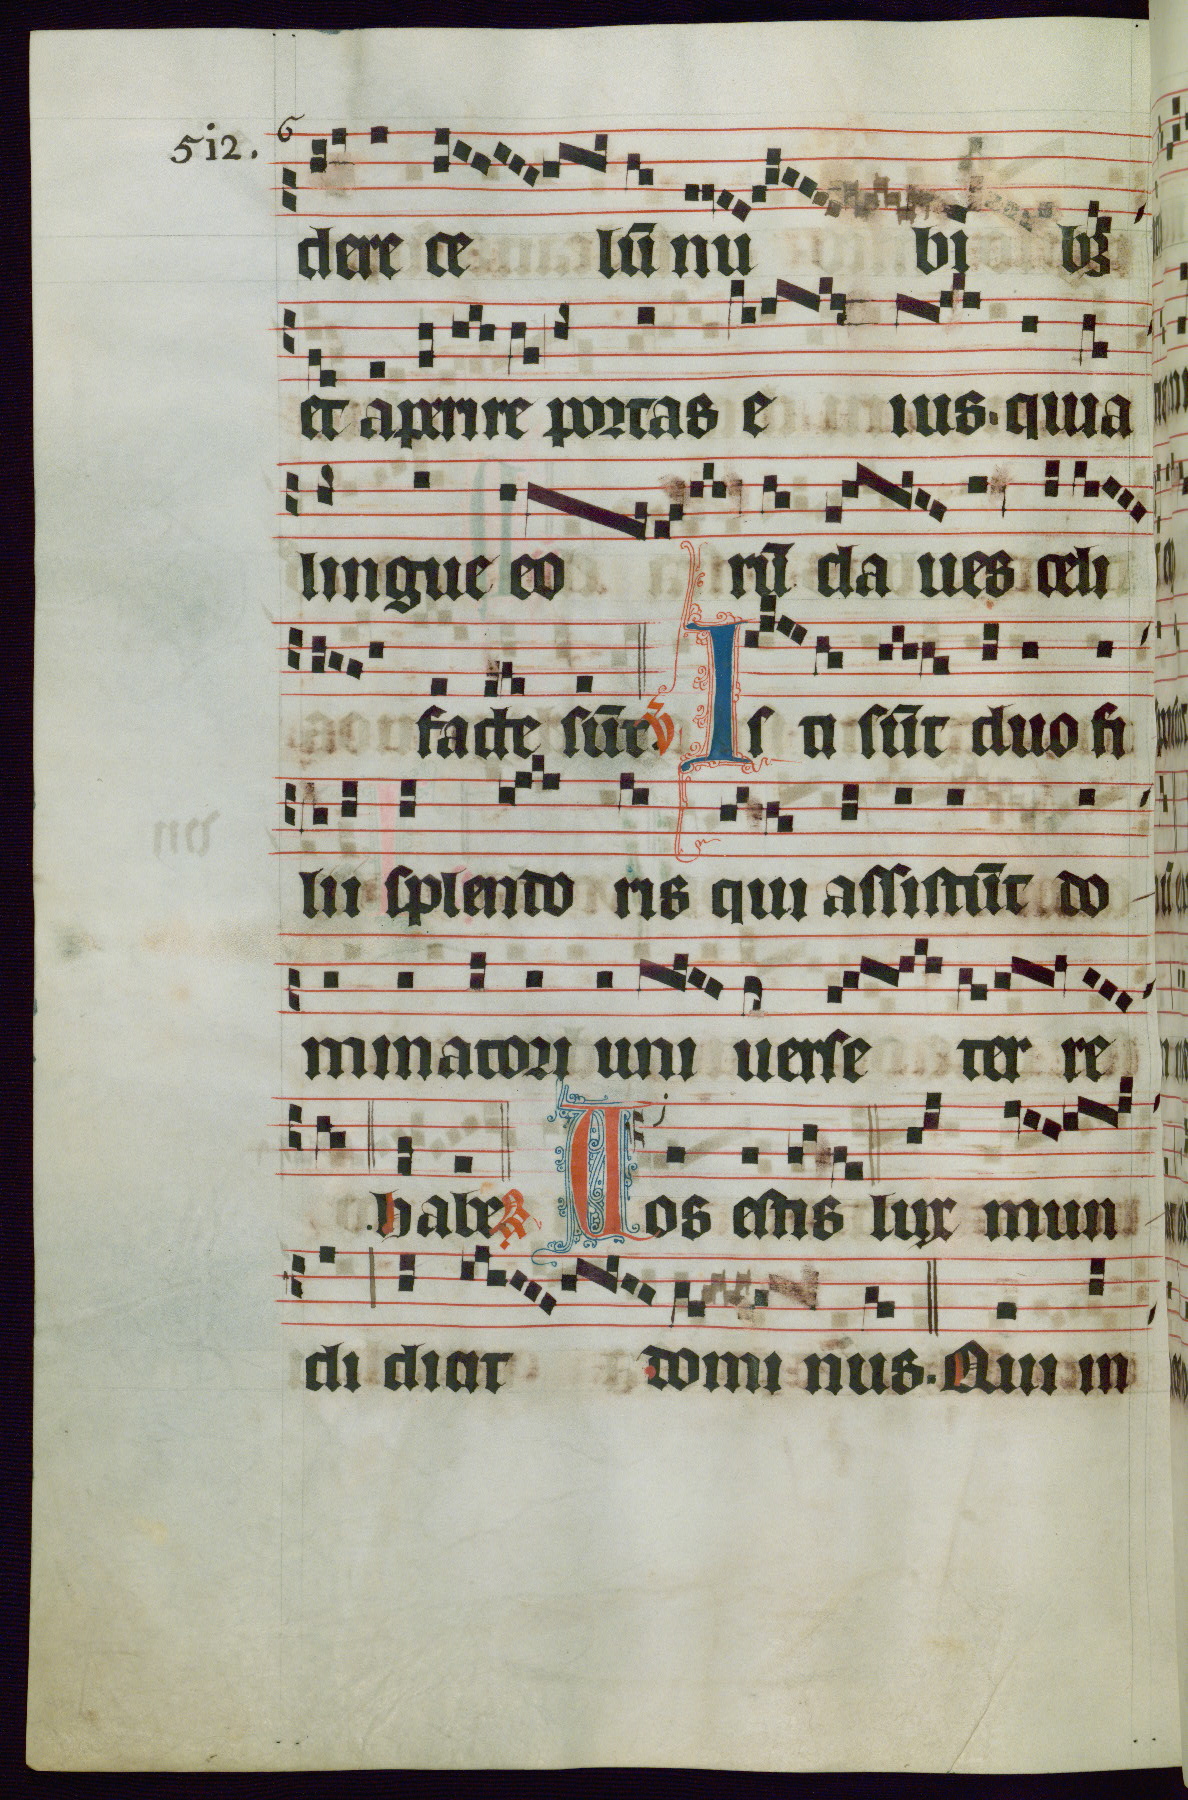 5i2. 6
dere ce lū nu bi bꝫ
et aperire portas e ius. quia
lingue eo rū da ues celi
facte sūt. V Is ti sūt duo fi
lii splendo ris qui assistūt do
minatori uni uerse ter re
.habe R Vos estis lux mun
di dicit domi nus. Qui in